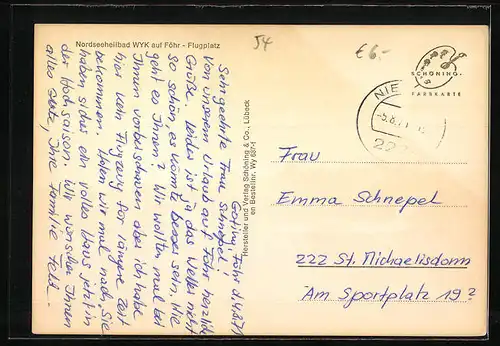 Nordseeheilbad WYK auf Föhr - Flugplatz
54
€6,-
SCHÖNING
FARBKARTE
NIE
222
Hersteller und Verlag Schöning & Co., Lübeck
en Bestellnr. Wy 687/1
Sehr geehrte Frau Schnepel!
Von unserem Urlaub auf Föhr herzliche
Grüße. Leider ist ja das Wetter nicht
so schön, es könnte besser sein. Wie
geht es Ihnen? Wir wollten mal bei
Ihnen vorbeschauen aber ich habe
hier kein Flugzeug für längere Zeit
bekommen. Sehen wir mal nach, Sie
haben sicher ein volles Haus jetzt in
der Hochsaison. Wir wünschen Ihnen
alles Gute, Ihre Familie
Frau
Emma Schnepel
222 St. Michaelisdonn
Am Sportplatz 19?